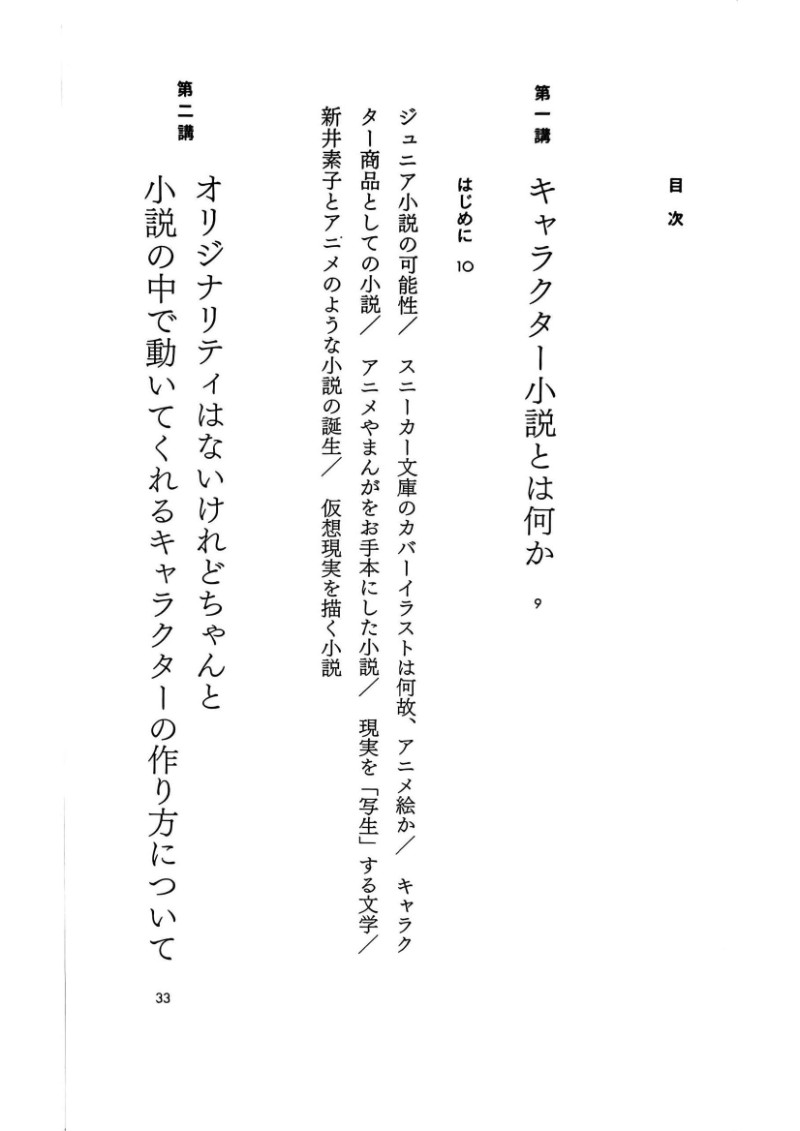 目次
第一講 キャラクター小説とは何か 9
はじめに 10
ジュニア小説の可能性／ スニーカー文庫のカバーイラストは何故、アニメ絵か／ キャラク
ター商品としての小説／ アニメやまんがをお手本にした小説／ 現実を「写生」する文学／
新井素子とアニメのような小説の誕生／ 仮想現実を描く小説
第二講 オリジナリティはないけれどちゃんと
小説の中で動いてくれるキャラクターの作り方について 33